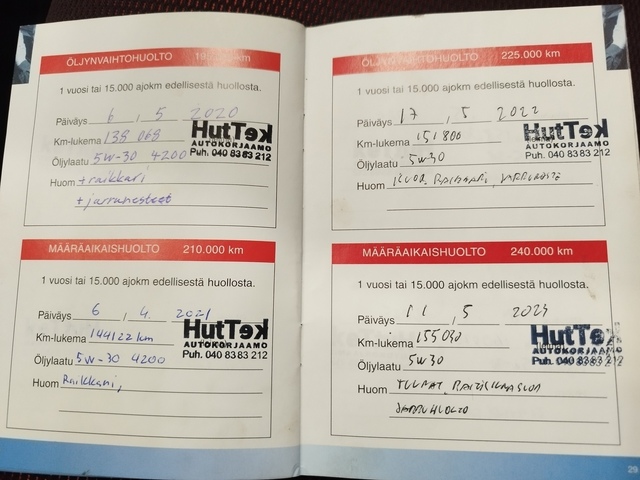 ÖLJYNVAIHTOHUOLTO km
1 vuosi tai 15.000 ajokm edellisestä huollosta.
Päiväys 6 . 5 2020
Km-lukema 138 068
Öljylaatu 5W-30 4200
Huom + raikkari
+ jarrunesteet
HutTek
AUTOKORJAAMO
Puh. 040 83 83 212
MÄÄRÄAIKAISHUOLTO 210.000 km
1 vuosi tai 15.000 ajokm edellisestä huollosta.
Päiväys 6 . 4. 2021
Km-lukema 144122 km
Öljylaatu 5W-30 4200
Huom Raikkari,
HutTek
AUTOKORJAAMO
Puh. 040 83 83 212
ÖLJYNVAIHTOHUOLTO 225.000 km
1 vuosi tai 15.000 ajokm edellisestä huollosta.
Päiväys 17 . 5 2022
Km-lukema 151800
Öljylaatu 5W30
Huom
HutTek
AUTOKORJAAMO
Puh. 040 83 83 212
MÄÄRÄAIKAISHUOLTO 240.000 km
1 vuosi tai 15.000 ajokm edellisestä huollosta.
Päiväys 11 . 5 2024
Km-lukema 155030
Öljylaatu 5W30
Huom TULPAT,
JARRUHUOLTO
HutTek
AUTOKORJAAMO
Puh. 040 83 83 212
29